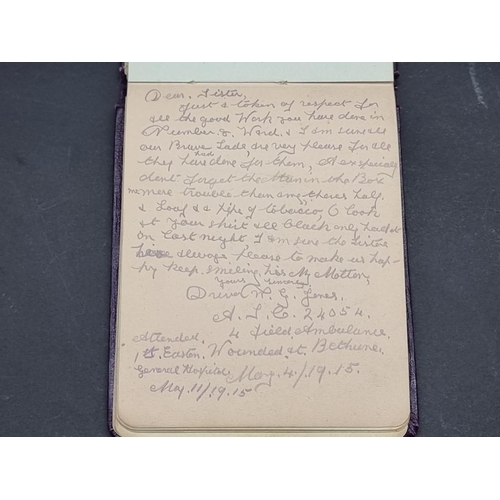 Dear. Sister,
Just a token of respect for
all the good Work you have done in
Number. 8. Ward. & I am sure all
our Brave Lads, are very please for all
they have had done for them, & especialy
dont forget the Man in the Box
more trouble than any, theres half
a Loaf & a pipe of tobacco, O look
at your shirt all black only had it
on Last night, I am sure the Sisters
always please to make us hap-
py keep. smeling, his My Motter,
yours sincerly
Driver W. G. Jones.
A. S. C. 24054.
Attended. 4 Field Ambulance.
1st. Eastern. Wounded at Bethune.
General Hospital May. 4/19.15.
May. 11/19.15